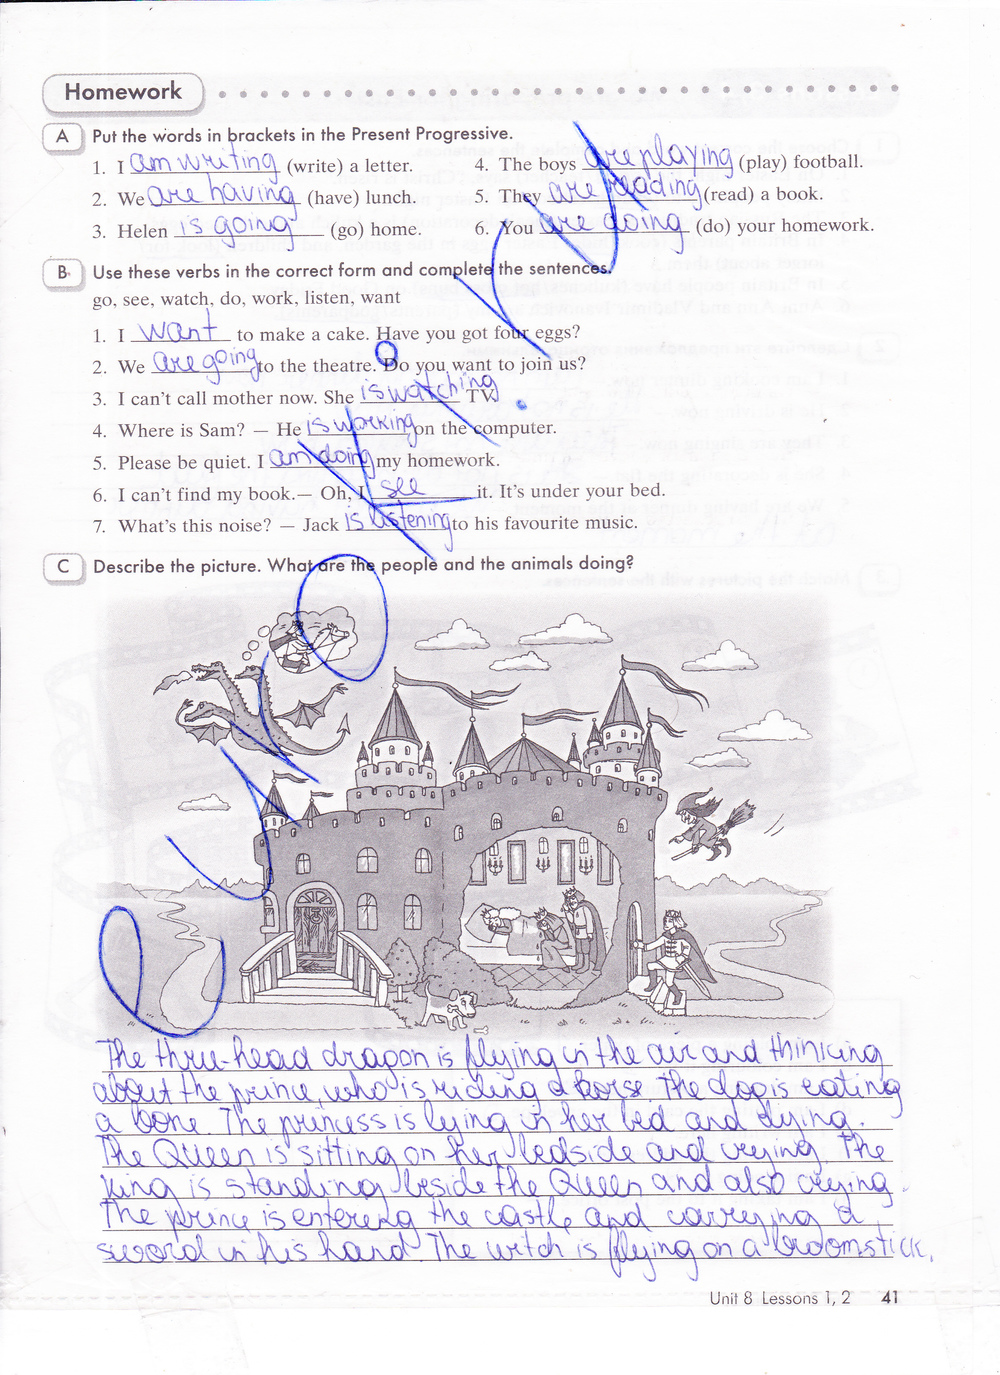 Homework
A Put the words in brackets in the Present Progressive.
1. I am writing (write) a letter.
2. We are having (have) lunch.
3. Helen is going (go) home.
4. The boys are playing (play) football.
5. They are reading (read) a book.
6. You are doing (do) your homework.
B Use these verbs in the correct form and complete the sentences.
go, see, watch, do, work, listen, want
1. I want to make a cake. Have you got four eggs?
2. We are going to the theatre. Do you want to join us?
3. I can't call mother now. She is watching TV.
4. Where is Sam? – He is working on the computer.
5. Please be quiet. I am doing my homework.
6. I can't find my book. – Oh, I see it. It's under your bed.
7. What's this noise? – Jack is listening to his favourite music.
C Describe the picture. What are the people and the animals doing?
The three-head dragon is flying in the air and thinking
about the prince, who is riding a horse. The dog is eating
a bone. The princess is lying in her bed and dying.
The Queen is sitting on her bedside and crying. The
king is standing beside the Queen and also crying.
The prince is entering the castle and carrying a
sword in his hand. The witch is flying on a broomstick.
Unit 8 Lessons 1, 2 41